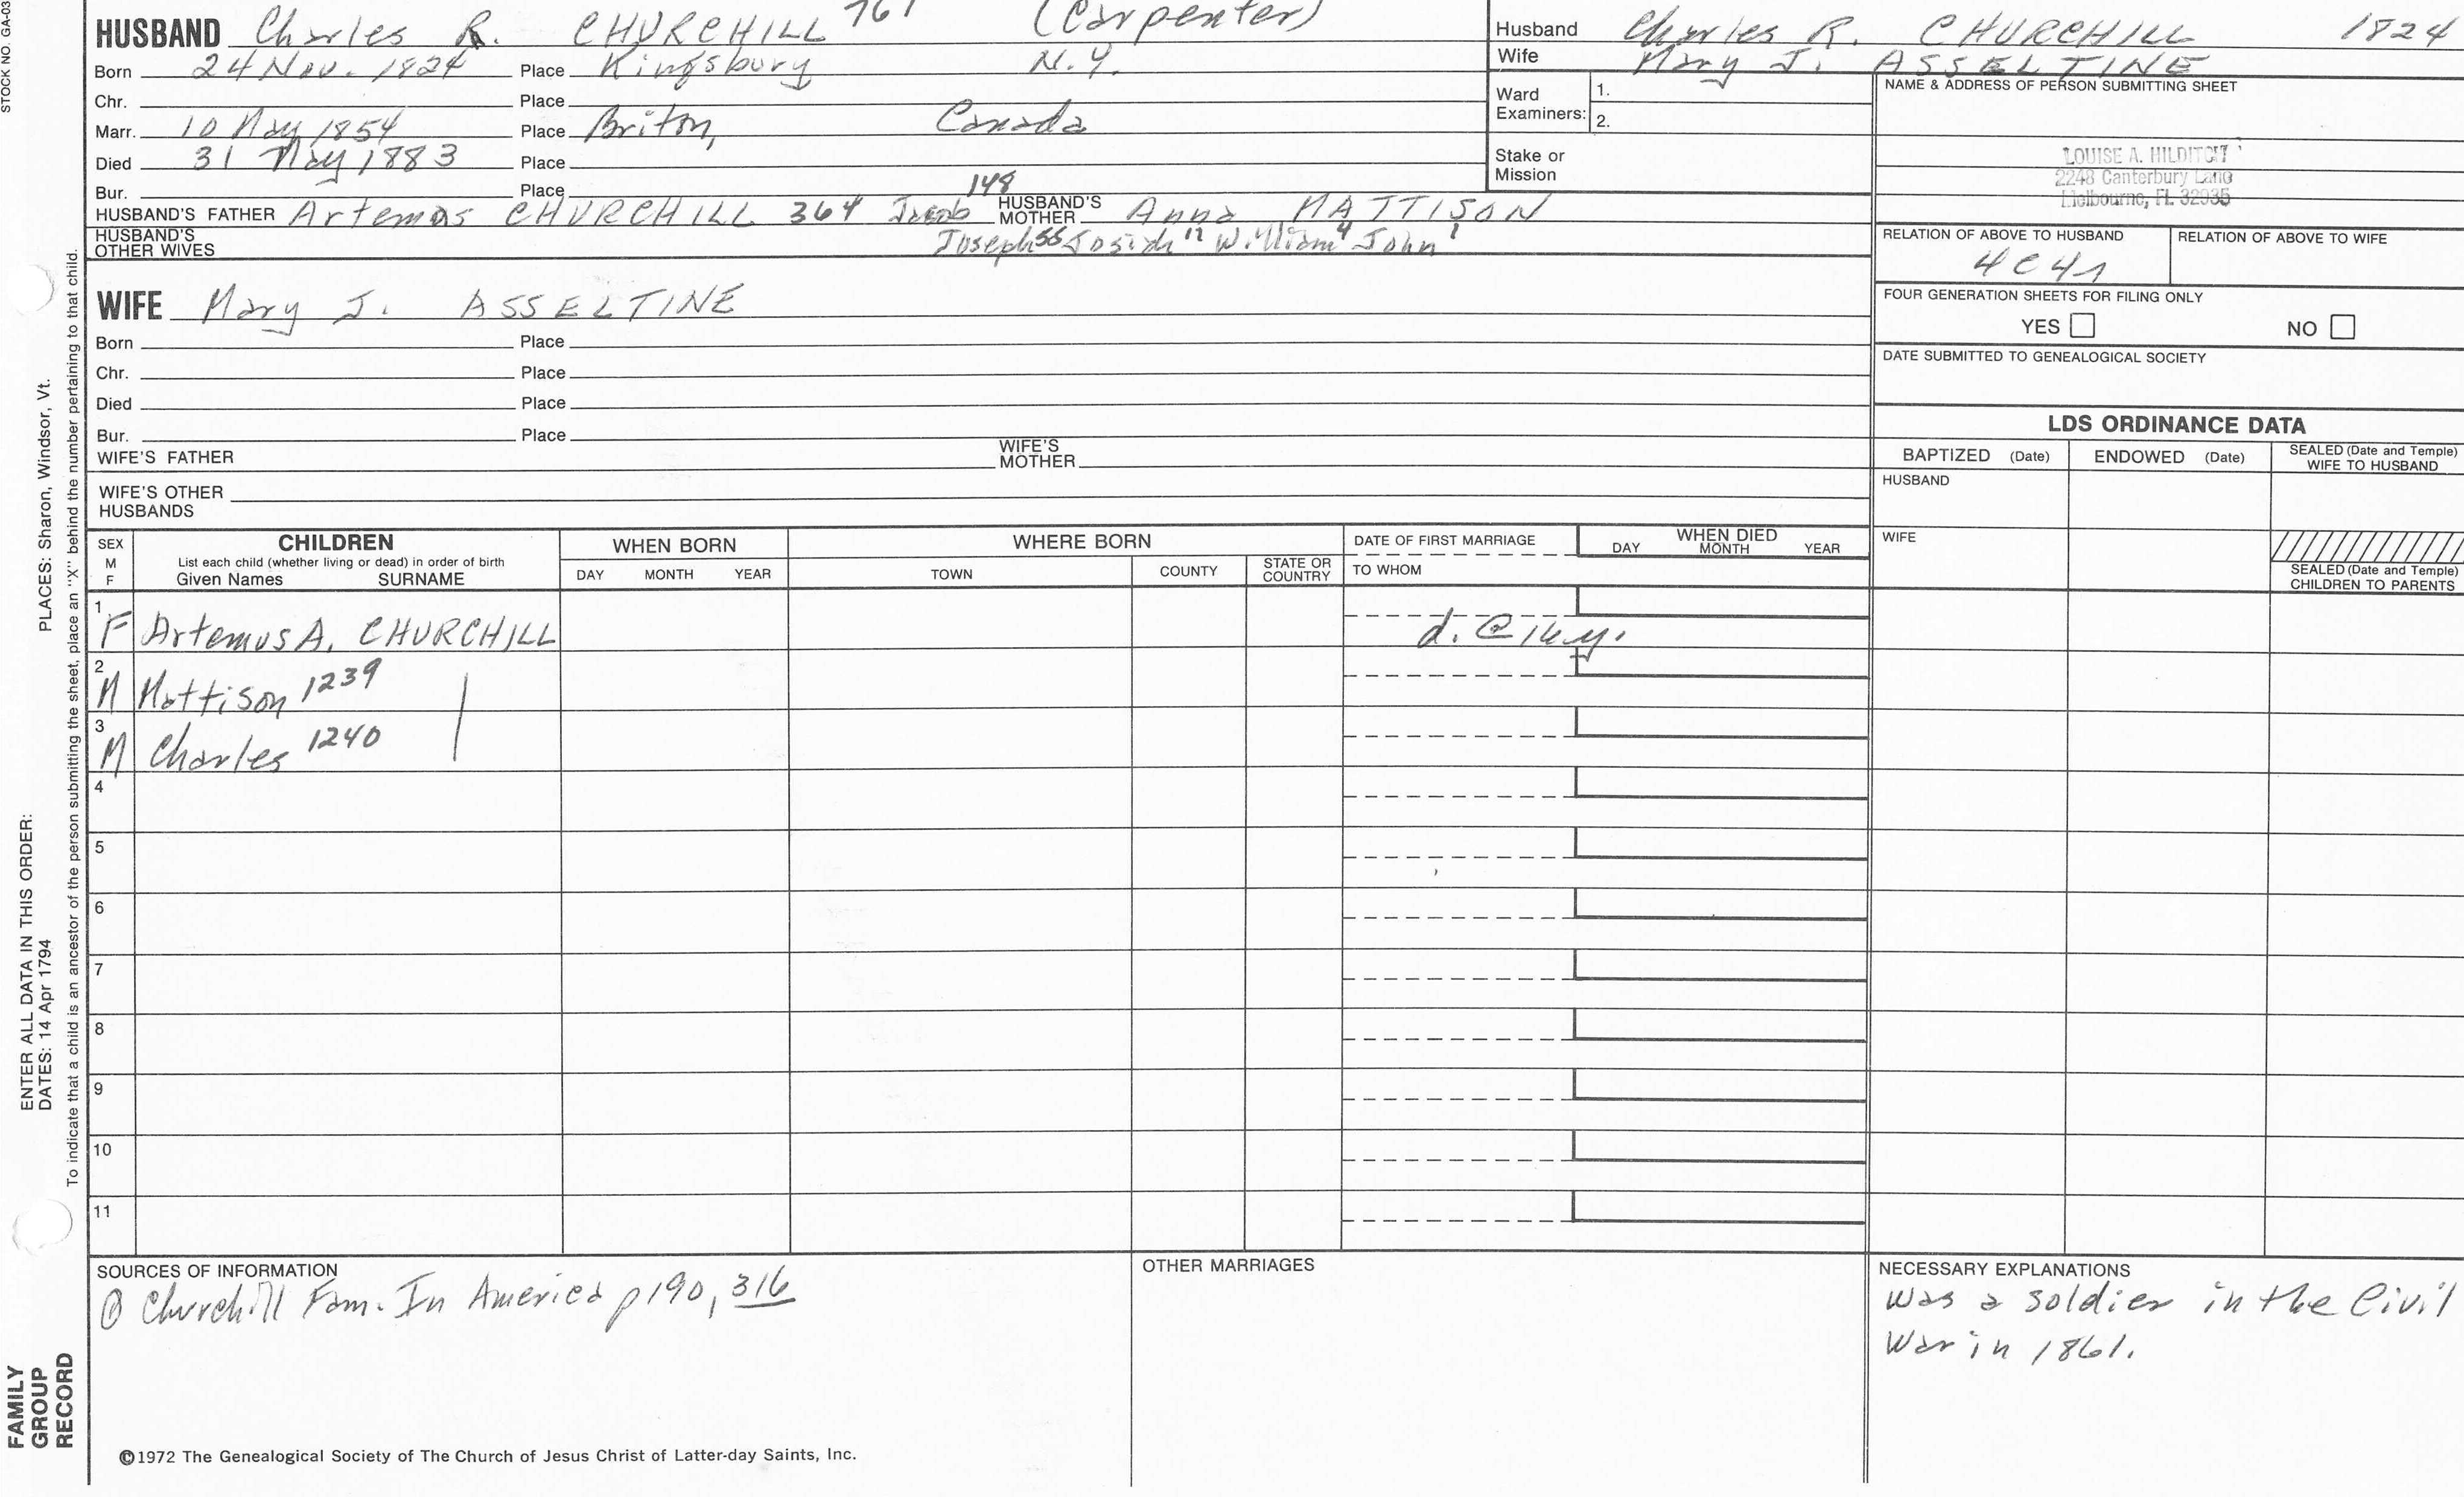 STOCK NO. GA-03
HUSBAND Charles R. CHURCHILL 761 (Carpenter)
Born 24 Nov. 1824 Place Kingsbury N.Y.
Chr. Place
Marr. 10 May 1854 Place Briton, Canada
Died 31 May 1883 Place
Bur. Place
HUSBAND'S FATHER Artemas CHURCHILL 364 Jacob 148 HUSBAND'S MOTHER Anna MATTISON
HUSBAND'S OTHER WIVES Joseph 55 Josiah 12 William 4 John 1
Husband Charles R. CHURCHILL 1824
Wife Mary J. ASSELTINE
Ward Examiners: 1.
2.
Stake or Mission
NAME & ADDRESS OF PERSON SUBMITTING SHEET
LOUISE A. HILDITCH
2248 Canterbury Lane
Melbourne, FL 32935
RELATION OF ABOVE TO HUSBAND RELATION OF ABOVE TO WIFE
4C4r
FOUR GENERATION SHEETS FOR FILING ONLY
YES NO
DATE SUBMITTED TO GENEALOGICAL SOCIETY
WIFE Mary J. ASSELTINE
Born Place
Chr. Place
Died Place
Bur. Place
WIFE'S FATHER WIFE'S MOTHER
WIFE'S OTHER HUSBANDS
LDS ORDINANCE DATA
BAPTIZED (Date) ENDOWED (Date) SEALED (Date and Temple) WIFE TO HUSBAND
HUSBAND
WIFE
SEALED (Date and Temple) CHILDREN TO PARENTS
SEX M F
CHILDREN
List each child (whether living or dead) in order of birth
Given Names SURNAME
WHEN BORN
DAY MONTH YEAR
WHERE BORN
TOWN COUNTY STATE OR COUNTRY
DATE OF FIRST MARRIAGE
TO WHOM
WHEN DIED
DAY MONTH YEAR
1 F Artemus A. CHURCHILL d. @ 16 y.
2 M Mattison 1239
3 M Charles 1240
4
5
6
7
8
9
10
11
SOURCES OF INFORMATION
① Churchill Fam. In America p190, 316
OTHER MARRIAGES
NECESSARY EXPLANATIONS
Was a soldier in the Civil
War in 1861.
©1972 The Genealogical Society of The Church of Jesus Christ of Latter-day Saints, Inc.
ENTER ALL DATA IN THIS ORDER:
DATES: 14 Apr 1794 PLACES: Sharon, Windsor, Vt.
To indicate that a child is an ancestor of the person submitting the sheet, place an "X" behind the number pertaining to that child.
FAMILY
GROUP
RECORD